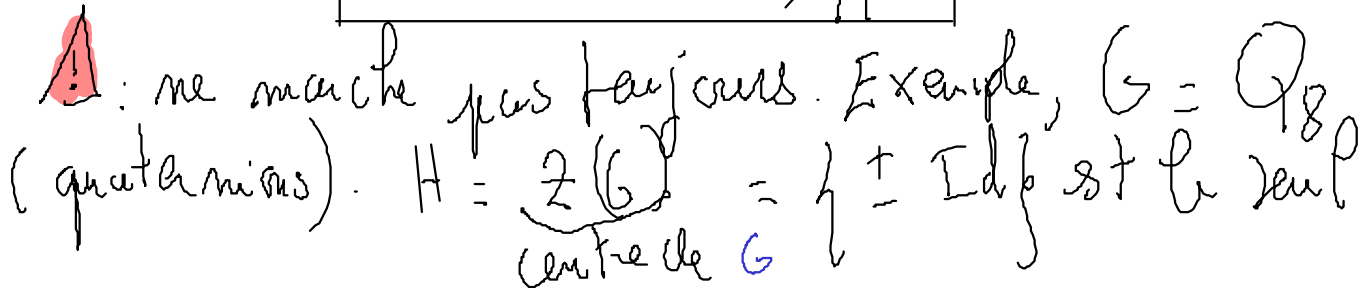 ! : ne marche pas toujours. Exemple, G = Q_8
(quaternions). H = Z(G) = {± Id} st le seul
centre de G